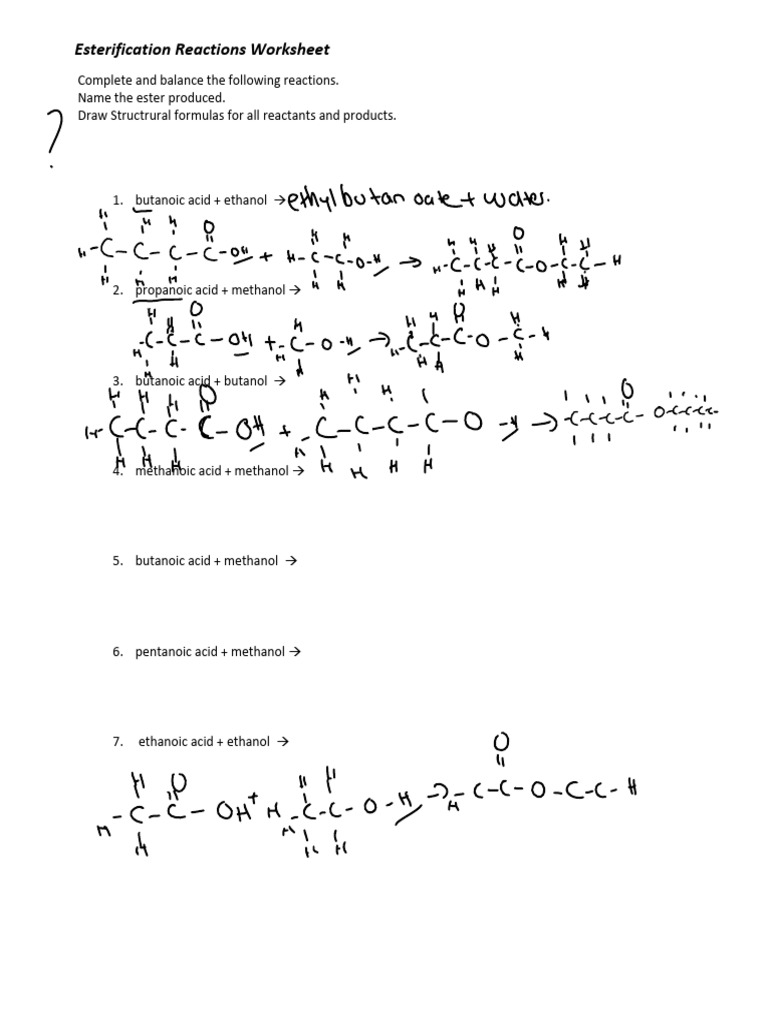 Esterification Reactions Worksheet
Complete and balance the following reactions.
Name the ester produced.
Draw Structrural formulas for all reactants and products.
?
1. butanoic acid + ethanol → ethylbutanoate + water.
H H H O
H-C-C-C-C-OH + H-C-C-O-H → H-C-C-C-C-O-C-C-H
2. propanoic acid + methanol →
-C-C-C-OH + -C-O-H → H-C-C-C-O-C-H
3. butanoic acid + butanol →
H-C-C-C-C-OH + -C-C-C-C-O-H → -C-C-C-C-O-C-C-C-C-
4. methanoic acid + methanol →
5. butanoic acid + methanol →
6. pentanoic acid + methanol →
7. ethanoic acid + ethanol →
H O
H-C-C-OH + H-C-C-O-H → H-C-C-O-C-C-H